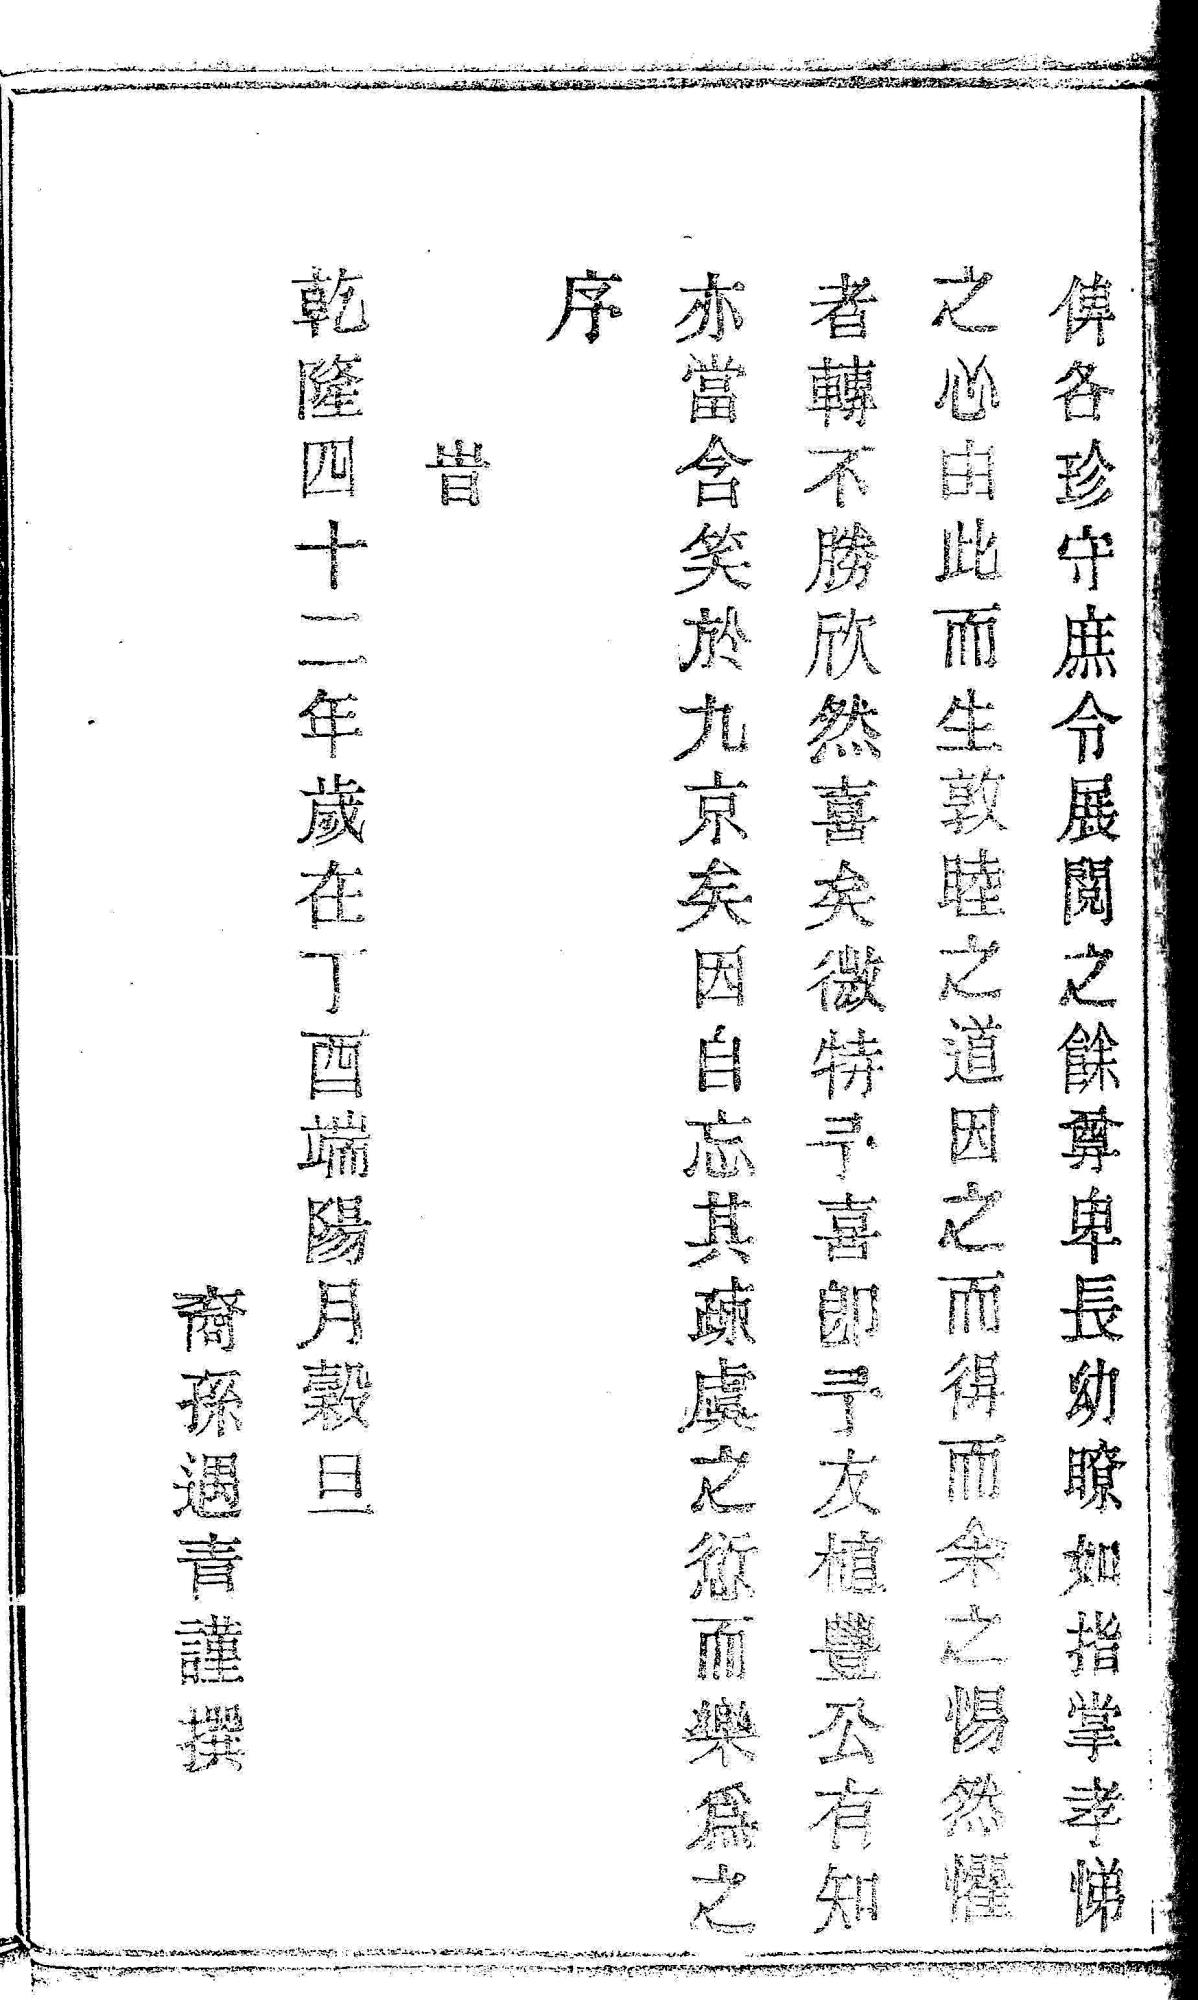 俾各珍守庶令展閱之餘尊卑長幼瞭如指掌孝悌
之心由此而生敦睦之道因之而得而余之惕然懼
者轉不勝欣然喜矣微特予喜卽予友植豐公有知
亦當含笑於九京矣因自忘其疎虞之愆而樂爲之
序
旹
乾隆四十二年歲在丁酉端陽月穀旦
裔孫遇青謹撰